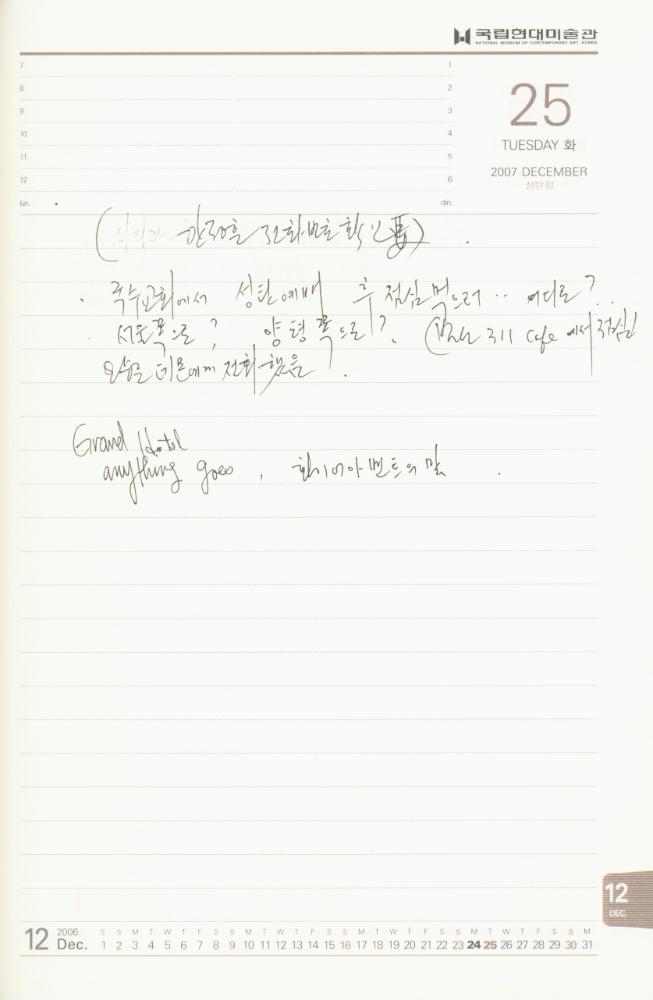 국립현대미술관
NATIONAL MUSEUM OF CONTEMPORARY ART, KOREA
7 1
8 2
9 3
10 4
11 5
12 6
lun. din.
25
TUESDAY 화
2007 DECEMBER
성탄절
전화번호 확인 要)
교회에서 성탄예배 후 점심 먹으러 .. 어디로?
서도쪽으로? 양평쪽으로?. 311 Cafe 에서 점심
오늘 전화했음.
Grand Hotel
anything goes, 의 말
12
DEC.
12 2006 Dec.
S S M T W T F S S M T W T F S S M T W T F S S M T W T F S S M
1 2 3 4 5 6 7 8 9 10 11 12 13 14 15 16 17 18 19 20 21 22 23 24 25 26 27 28 29 30 31